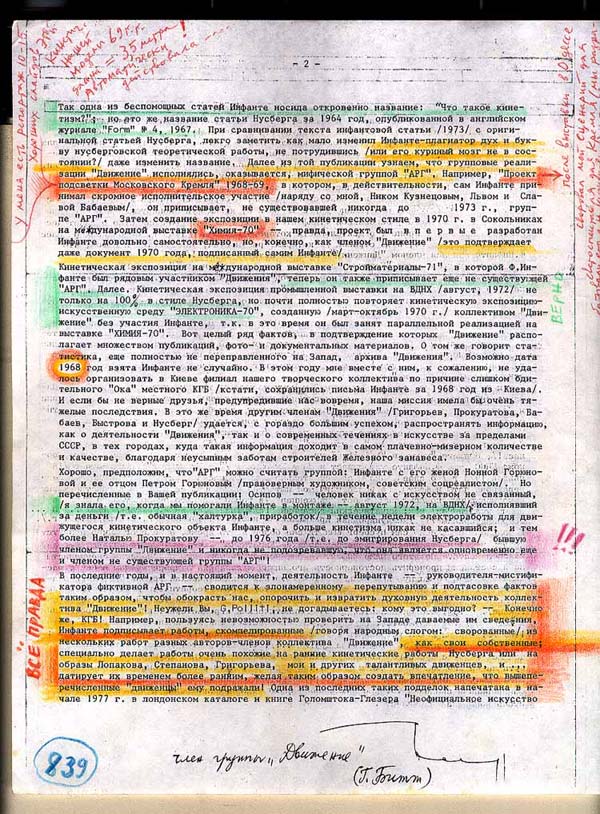 - 2 -
Так одна из беспомощных статей Инфанте носила откровенно название: "Что такое кине-
тизм?"; но это же название статьи Нусберга за 1964 год, опубликованной в английском
журнале "Form" № 4, 1967. При сравнении текста инфантовой статьи /1973/ с ориги-
нальной статьей Нусберга, легко заметить как мало изменил Инфанте-плагиатор дух и бук-
ву нусберговской теоретической работы, не потрудившись /или его куриный мозг не в сос-
тоянии?/ даже изменить название. Далее из той публикации узнаем, что групповые реали-
зации "Движение" исполнялись, оказывается, мифической группой "АРГ". Например, "Проект
подсветки Московского Кремля" 1968-69, в котором, в действительности, сам Инфанте при-
нимал скромное исполнительское участие /наряду со мной, Ником Кузнецовым, Львом и Сла-
вой Бабаевым/, он приписывает, не существовавшей никогда до 1973 г., груп-
пе "АРГ". Затем создание экспозиции в нашем кинетическом стиле в 1970 г. в Сокольниках
на международной выставке "Химия-70" -- правда, проект был в п е р в ы е разработан
Инфанте довольно самостоятельно, но, конечно, как членом "Движение" /это подтверждает
даже документ 1970 года, подписанный самим Инфанте/.
Кинетическая экспозиция на международной выставке "Стройматериалы-71", в которой Ф.Ин-
фанте был рядовым участником "Движения", теперь он также приписывает еще не существующей
"АРГ". Далее. Кинетическая экспозиция промышленной выставки на ВДНХ /август, 1972/ не
только на 100% в стиле Нусберга, но почти полностью повторяет кинетическую экспозицию-
искусственную среду "ЭЛЕКТРОНИКА-70", созданную /март-октябрь 1970 г./ коллективом "Дви-
жение" без участия Инфанте, т.к. в это время он был занят параллельной реализацией на
выставке "ХИМИЯ-70". Вот целый ряд фактов, в подтверждение которых "Движение" распо-
лагает множеством публикаций, фото- и документальных материалов. О том же говорит ста-
тистика, еще полностью не переправленного на Запад, архива "Движения". Возможно дата
1968 год взята Инфанте не случайно. В этом году мне вместе с ним, к сожалению, не уда-
лось организовать в Киеве филиал нашего творческого коллектива по причине слишком бди-
тельного "Ока" местного КГБ /кстати, сохранились письма Инфанте за 1968 год из Киева/.
И если бы не верные друзья, предупредившие нас вовремя, наша миссия имела бы очень тя-
желые последствия. В это же время другим членам "Движения" /Григорьев, Прокуратова, Ба-
баев, Быстрова и Нусберг/ удается, с гораздо большим успехом, распространять информацию,
как о деятельности "Движения", так и о современных течениях в искусстве за пределами
СССР, в тех городах, куда такая информация доходит в самом плачевно-мизерном количестве
и качестве, благодаря неусыпным заботам строителей Железного занавеса.
Хорошо, предположим, что "АРГ" можно считать группой: Инфанте с его женой Нонной Горюно-
вой и ее отцом Петром Горюновым /правоверным художником, советским соцреалистом/. Но
перечисленные в Вашей публикации: Осипов -- человек никак с искусством не связанный,
/я знала его, когда мы помогали Инфанте в монтаже - август 1972, на ВДНХ/ исполнявший
за деньги /т.е. обычная "халтурка", приработок/ в течение недели электроработы для дви-
жущегося кинетического объекта Инфанте, а больше кинетизма никак не касавшийся; и тем
более Наталью Прокуратову --, до 1976 года /т.е. до эмигрирования Нусберга/ бывшую
членом группы "Движение" и никогда не подозревавшую, что она является одновременно еще
и членом не существующей группы "АРГ"!
В последние годы, и в настоящий момент, деятельность Инфанте --, руководителя-мистифи-
катора фиктивной АРГ -- сводится к злонамеренному перепутыванию и подтасовке фактов
таким образом, чтобы обокрасть нас, опорочить и извратить духовную деятельность коллек-
тива "Движение"! Неужели Вы, G.Politi, не догадываетесь: кому это выгодно? -- Конечно
же, КГБ! Например, пользуясь невозможностью проверить на Западе даваемые им сведения,
Инфанте подписывает работы, скомпелированные /говоря народным слогом: сворованные/ из
нескольких работ разных авторов-членов коллектива "Движение" как свои собственные;
специально делает работы очень похожие на ранние кинетические работы Нусберга или на
образы Лопакова, Степанова, Григорьева, мои и других талантливых движенцев, и ...
датирует их временем более ранним, желая таким образом создать впечатление, что вышепе-
речисленные "движенцы" ему подражали! Одна из последних таких подделок напечатана в на-
чале 1977 г. в лондонском каталоге и книге Голомштока-Глезера "Неофициальное искусство
ВЕРНО
!!!
ВСЕ ПРАВДА
839
член группы „Движение"
(Г. Битт)